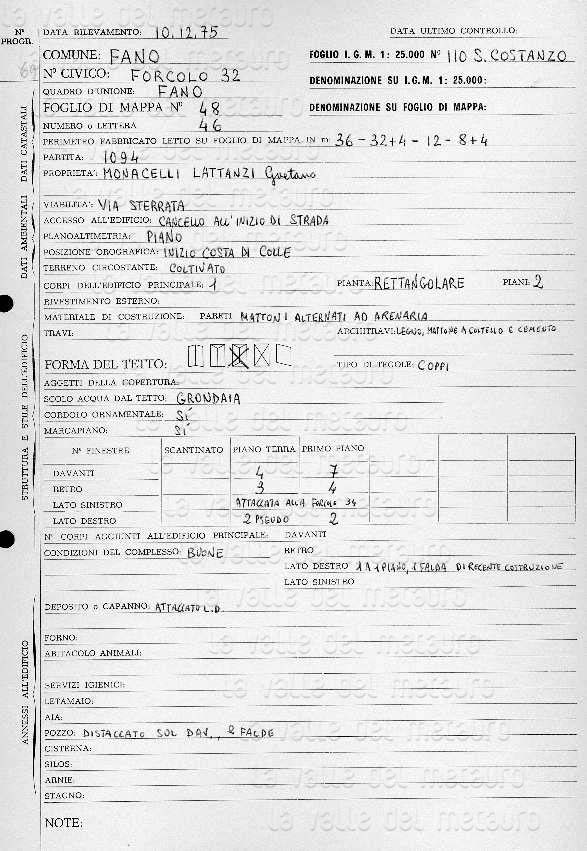 N° PROGR.
DATA RILEVAMENTO: 10.12.75 DATA ULTIMO CONTROLLO:
COMUNE: FANO FOGLIO I.G.M. 1:25.000 N° 110 S. COSTANZO
N° CIVICO: FORCOLO 32 DENOMINAZIONE SU I.G.M. 1:25.000:
QUADRO D'UNIONE: FANO
FOGLIO DI MAPPA N° 48 DENOMINAZIONE SU FOGLIO DI MAPPA:
NUMERO o LETTERA 46
PERIMETRO FABBRICATO LETTO SU FOGLIO DI MAPPA IN m 36-32+4-12-8+4
PARTITA: 1094
PROPRIETA': MONACELLI LATTANZI Gaetano
DATI CATASTALI
VIABILITA': VIA STERRATA
ACCESSO ALL'EDIFICIO: CANCELLO ALL'INIZIO DI STRADA
PLANOALTIMETRIA: PIANO
POSIZIONE OROGRAFICA: INIZIO COSTA DI COLLE
TERRENO CIRCOSTANTE: COLTIVATO
DATI AMBIENTALI
CORPI DELL'EDIFICIO PRINCIPALE: 1 PIANTA: RETTANGOLARE PIANI: 2
RIVESTIMENTO ESTERNO:
MATERIALE DI COSTRUZIONE: PARETI MATTONI ALTERNATI AD ARENARIA
TRAVI: ARCHITRAVI: LEGNO, MATTONE A COLTELLO E CEMENTO
FORMA DEL TETTO: TIPO DI TEGOLE: COPPI
AGGETTI DELLA COPERTURA:
SCOLO ACQUA DAL TETTO: GRONDAIA
CORDOLO ORNAMENTALE: SÍ
MARCAPIANO: SÍ
N° FINESTRE SCANTINATO PIANO TERRA PRIMO PIANO
DAVANTI 4 7
RETRO 3 4
LATO SINISTRO ATTACCATA ALLA FORCOLO 34
LATO DESTRO 2 PSEUDO 2
N° CORPI AGGIUNTI ALL'EDIFICIO PRINCIPALE: DAVANTI
CONDIZIONI DEL COMPLESSO: BUONE RETRO
LATO DESTRO 1 A 1 PIANO, 1 FALDA DI RECENTE COSTRUZIONE
LATO SINISTRO
STRUTTURA E STILE DELL'EDIFICIO
DEPOSITO o CAPANNO: ATTACCATO L.D.
FORNO:
ABITACOLO ANIMALI:
SERVIZI IGIENICI:
LETAMAIO:
AIA:
POZZO: DISTACCATO SUL DAV., 2 FALDE
CISTERNA:
SILOS:
ARNIE:
STAGNO:
ANNESSI ALL'EDIFICIO
NOTE:
la valle del metauro